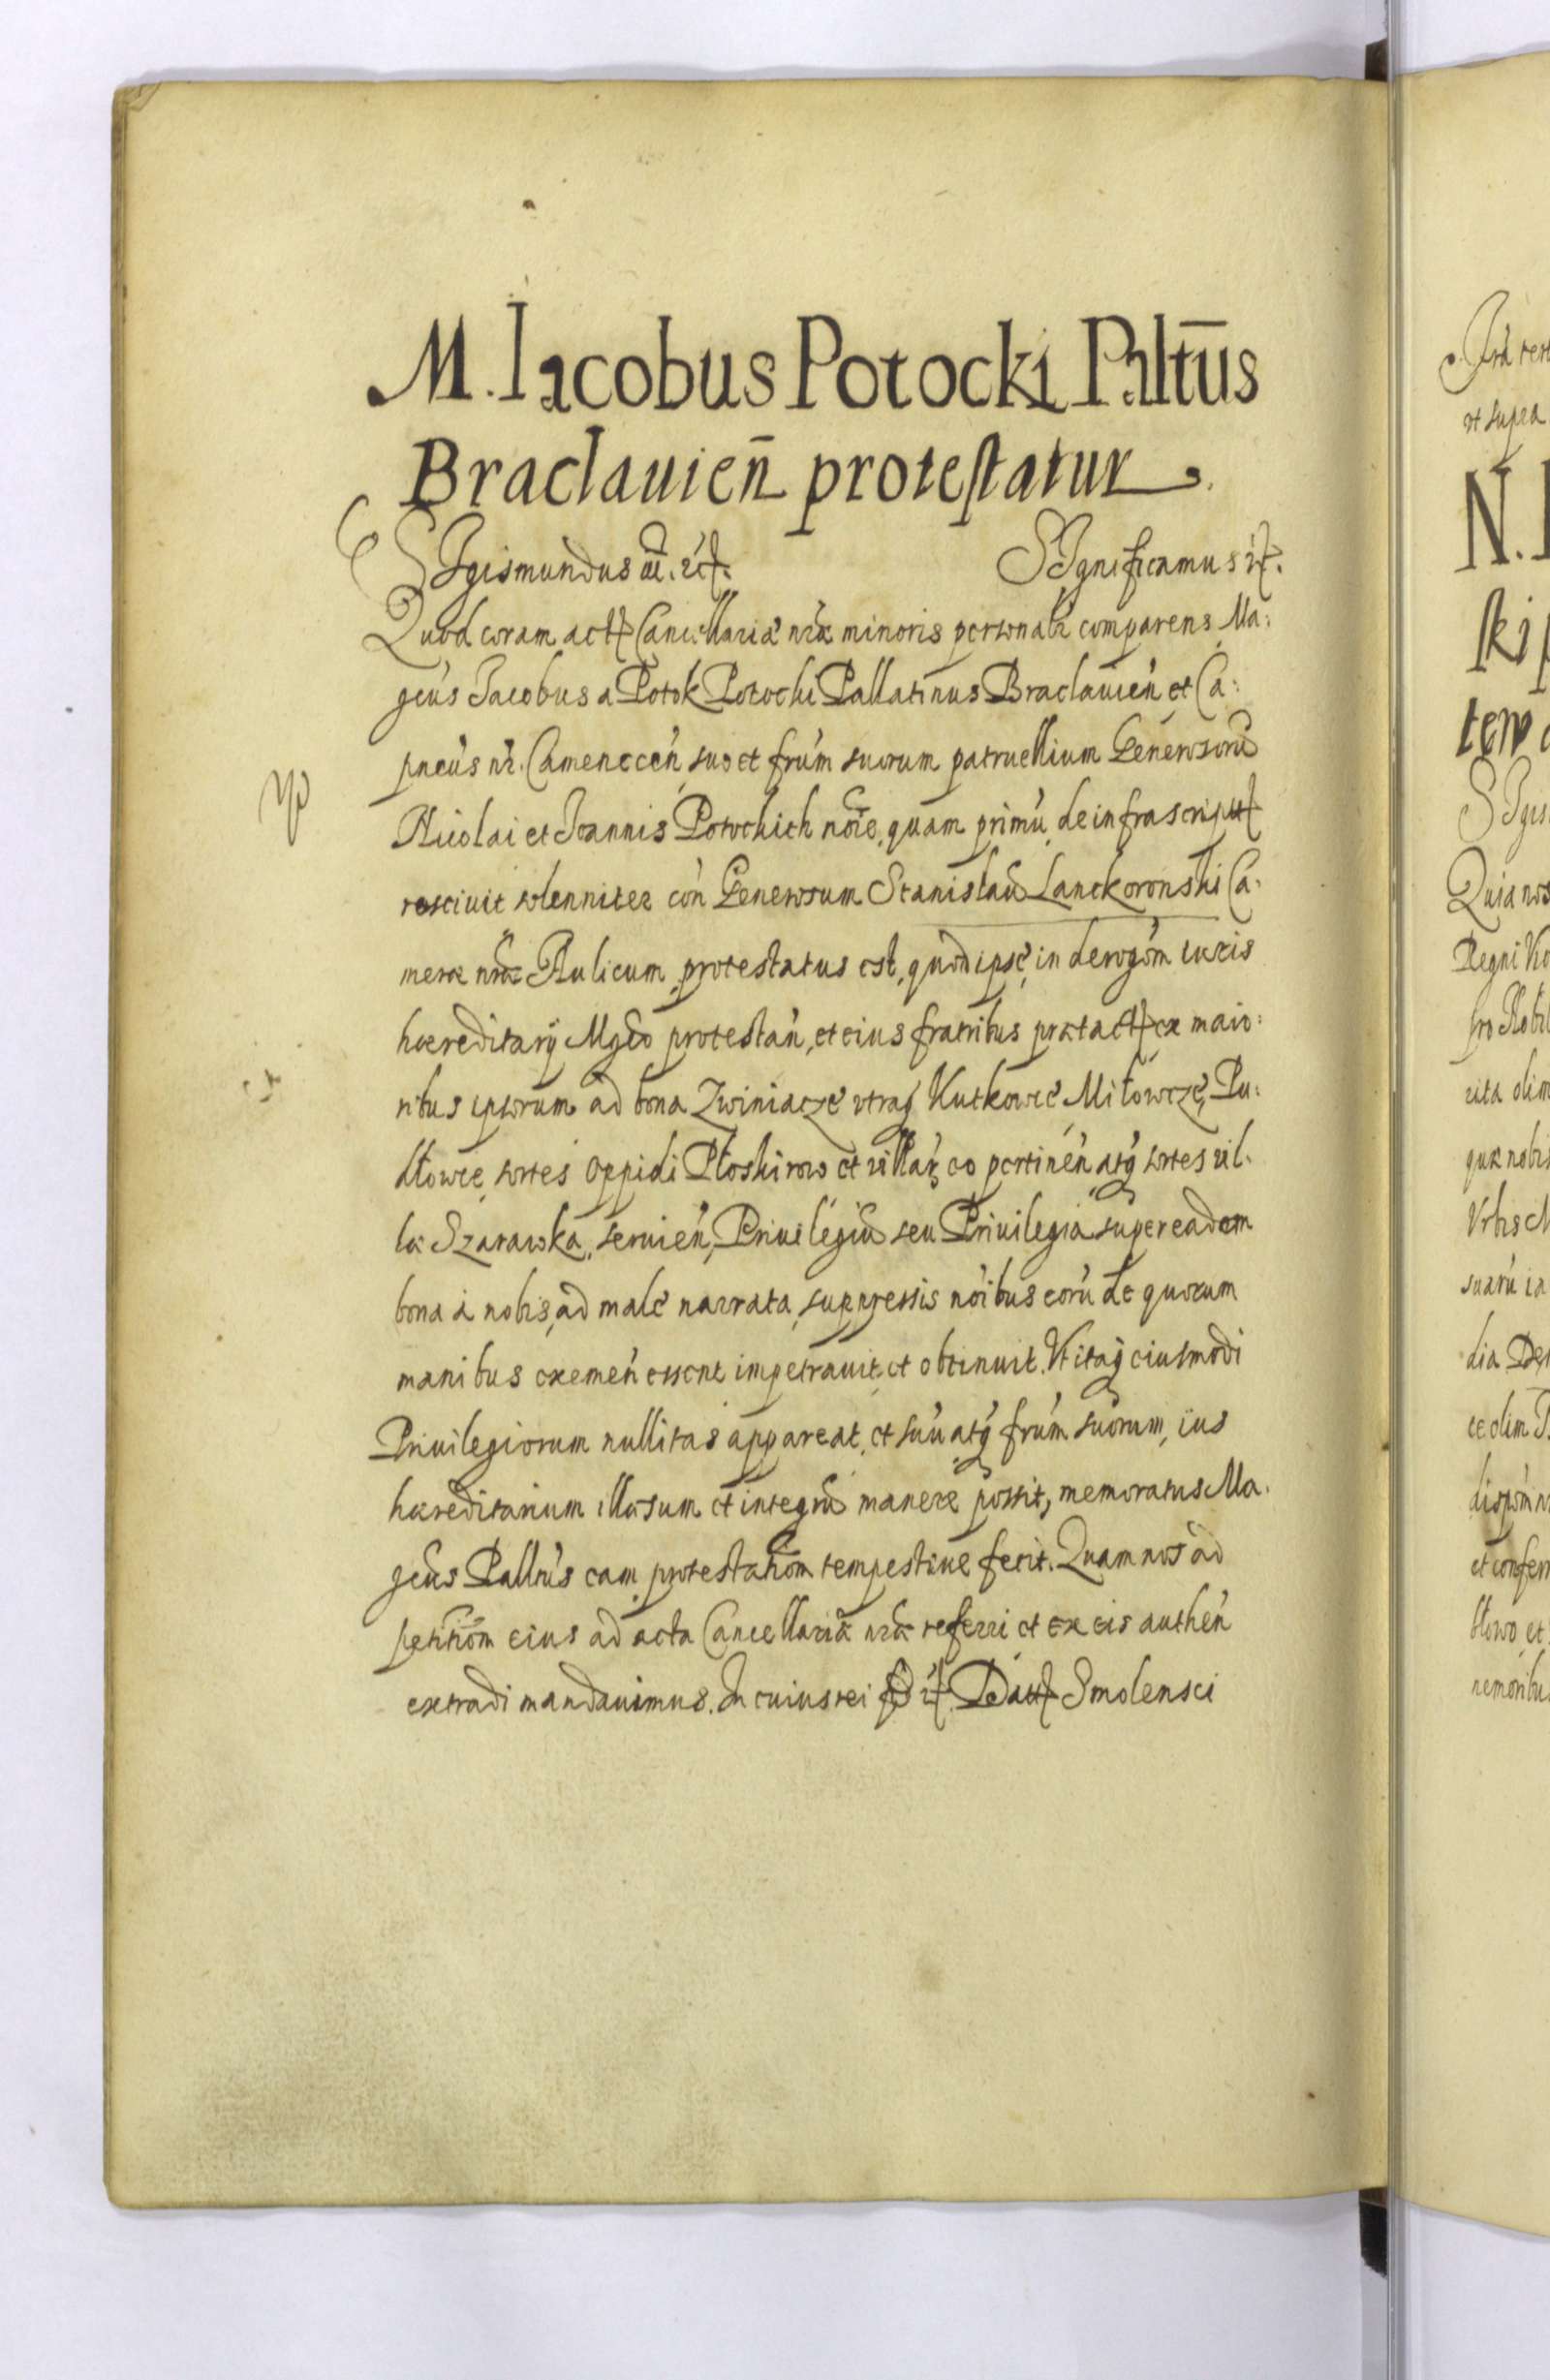 M. Iacobus Potocki Paltūs
Braclauien̄ protestatur.
SIgismundus etc. SIgnificamus etc.
Quod coram act Cancellariæ nræ minoris personalr comparens Ma:
gcus Jacobus a Potok Potocki Pallatinus Braclauien et Ca:
pneus nr. Camenecen suo et frum suorum patruellium Generosorū
Nicolai et Joannis Potockich noie, quam primu, de infrascript
resciuit solenniter con Generosum Stanislaū Lanckoronski Ca:
meræ nræ Aulicum, protestatus est, quod ipse, in derogom iuris
hæreditarij Mgco protestan, et eius fratribus prætact ex maio:
ribus ipsorum ad bona Zwiniacze vtraq Kutkowce Miłowcze, Pu:
dłowce, sortes Oppidi Płoskirow et villaꝝ eo pertinen atq sortes vil:
læ Szarawka, seruien, Priuilegiū seu Priuilegia super eadem
bona a nobis, ad male narrata, suppressis noibus eoru de quorum
manibus eximen essent impetrauit, et obtinuit. Vt itaq eiusmodi
Priuilegiorum nullitas appareat, et suu atq frum suorum, ius
hæreditarium illæsum et integrū manere possit, memoratus Ma:
gcus Palltus eam protestationom tempestiue fecit. Quam nos ad
petitiom eius ad acta Cancellariæ nræ referri et ex eis authen
extradi mandauimus. In cuius rei fid etc. Datt Smolensci